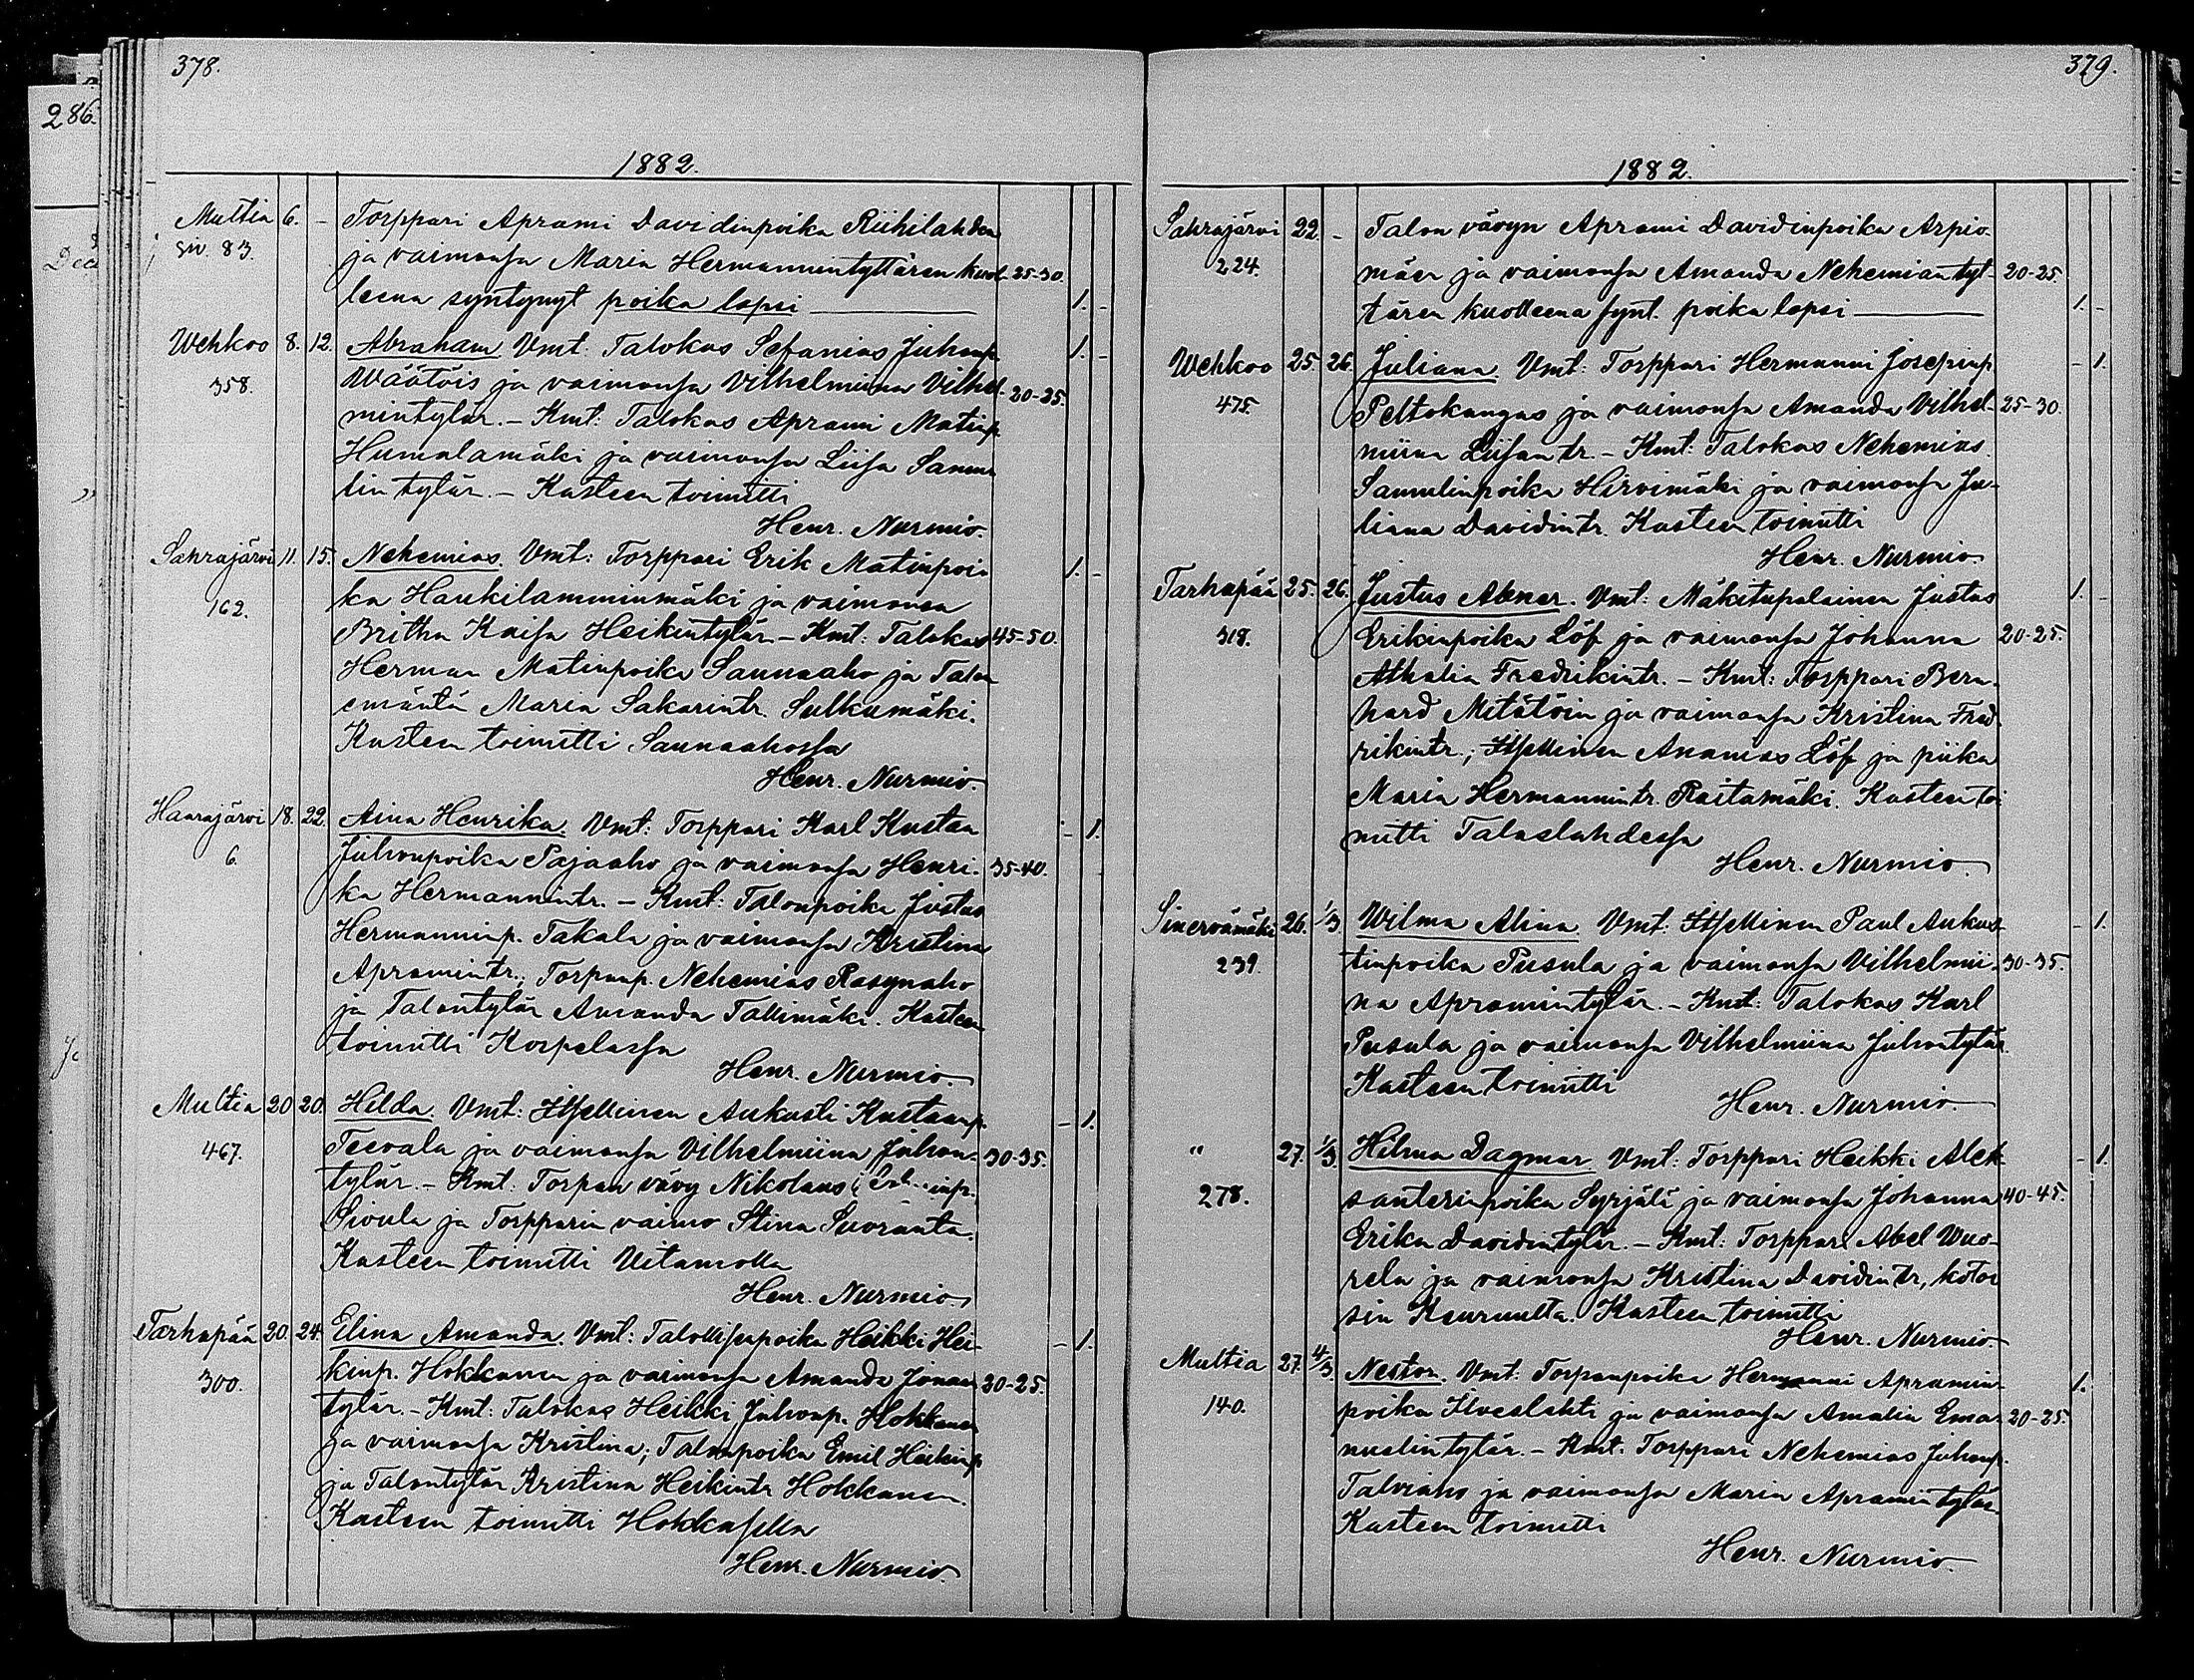 378.
286.
Dec
1882.
Multia 6. - Torppari Aprami Davidinpoika Riihilahden
siv. 83. ja vaimonsa Maria Hermannintyttären kuol- 25-30.
leena syntynyt poika lapsi 1. -
Wehkoo 8. 12. Abraham. Vmt: Talokas Sefanias Juhonp. 1. -
358. Väätäis ja vaimonsa Vilhelmiina Vilhel- 20-25.
mintytär. - Kmt: Talokas Aprami Matinp.
Humalamäki ja vaimonsa Liisa Samu
lin tytär. - Kasteen toimitti
Henr. Nurmio.
Sahrajärvi 11. 15. Nehemias. Vmt: Torppari Erik Matinpoi- 1. -
162. ka Haukilamminmäki ja vaimonsa
Britha Kaisa Heikintytär - Kmt: Talokas 45-50.
Herman Matinpoika Saunaaho ja Talon
emäntä Maria Sakarintr. Sulkumäki.
Kasteen toimitti Saunaahossa
Henr. Nurmio.
Haarajärvi 18. 22. Aina Henrika. Vmt: Torppari Karl Kustaa - 1.
6. Juhonpoika Pajaaho ja vaimonsa Henri- 35-40.
ka Hermannintr. - Kmt: Talonpoika Justus
Hermanninp. Takala ja vaimonsa Kristina
Apramintr.; Torpanp. Nehemias Rasynaho
ja Talontytär Amanda Tallimäki. Kasteen
toimitti Korpelassa
Henr. Nurmio.
Multia 20 20. Hilda. Vmt: Itsellinen Aukusti Kustaanp. - 1.
467. Teevala ja vaimonsa Vilhelmiina Juhon- 30-35.
tytär. - Kmt: Torpan vävy Nikolaus inp.
Sivula ja Torpparin vaimo Stina Suoranta.
Kasteen toimitti
Henr. Nurmio.
Tarhapää 20. 24. Elina Amanda. Vmt: Talollisenpoika Heikki Hei- - 1.
300. kinp. Hokkanen ja vaimonsa Amanda Jonaan 20-25.
tytär. - Kmt: Talokas Heikki Juhonp. Hokkanen
ja vaimonsa Kristina; Talonpoika Emil Heikinp.
ja Talontytär Kristina Heikintr Hokkanen.
Kasteen toimitti Hokkasella
Henr. Nurmio.
379.
1882.
Sahrajärvi 22. - Talon vävyn Aprami Davidinpoika Arpio-
224. mäen ja vaimonsa Amanda Nehemiantyt- 20-25.
tären kuolleena synt. poika lapsi 1. -
Wehkoo 25. 26. Juliana. Vmt: Torppari Hermanni Josepinp. - 1.
475. Peltokangas ja vaimonsa Amanda Vilhel- 25-30.
miina Liisantr. - Kmt: Talokas Nehemias
Samulinpoika Hirvimäki ja vaimonsa Ju-
liana Davidintr. Kasteen toimitti
Henr. Nurmio.
Tarhapää 25. 26. Justus Abner. Vmt: Mäkitupalainen Justus 1. -
318. Erikinpoika Löf ja vaimonsa Johanna 20-25.
Athalia Fredrikintr. - Kmt: Torppari Bern-
hard Mitätöin ja vaimonsa Kristina Fred-
rikintr.; Itsellinen Ananias Löf ja piika
Maria Hermannintr. Raitamäki. Kasteen toi
mitti Talaslahdessa
Henr. Nurmio.
Sinervämäki 26. 1/3. Wilma Alina. Vmt: Itsellinen Paul Aukus- - 1.
239. tinpoika Pusula ja vaimonsa Vilhelmii- 30-35.
na Apramintytär. - Kmt: Talokas Karl
Pusula ja vaimonsa Vilhelmiina Juhontytär.
Kasteen toimitti
Henr. Nurmio.
" 27. 1/3. Hilma Dagmar. Vmt: Torppari Heikki Alek- - 1.
278. santerinpoika Syrjälä ja vaimonsa Johanna 40-45.
Erika Davidintytär. - Kmt: Torppari Abel Wuo-
rela ja vaimonsa Kristina Davidintr, kotoi
sin Keuruulta. Kasteen toimitti
Henr. Nurmio.
Multia 27. 4/3. Nestor. Vmt: Torpanpoika Hermanni Apramin- 1.
140. poika Ilveslahti ja vaimonsa Amalia Ema- 20-25.
nuelintytär. - Kmt: Torppari Nehemias Juhonp.
Talviaho ja vaimonsa Maria Apramintytär
Kasteen toimitti
Henr. Nurmio.